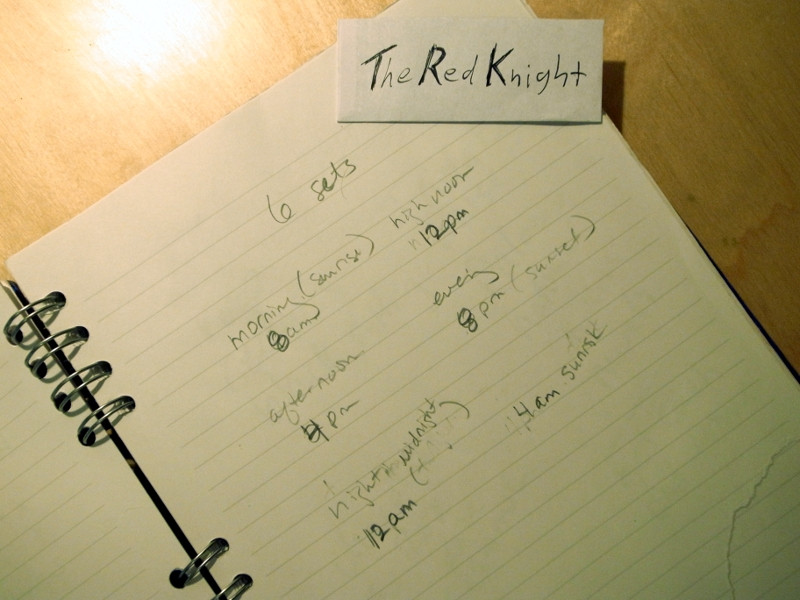 The Red Knight
6 sets
morning (sunrise)
8am
high noon
12pm
afternoon
4pm
evenig
8pm (sunset)
night midnight
12am
4am sunrise